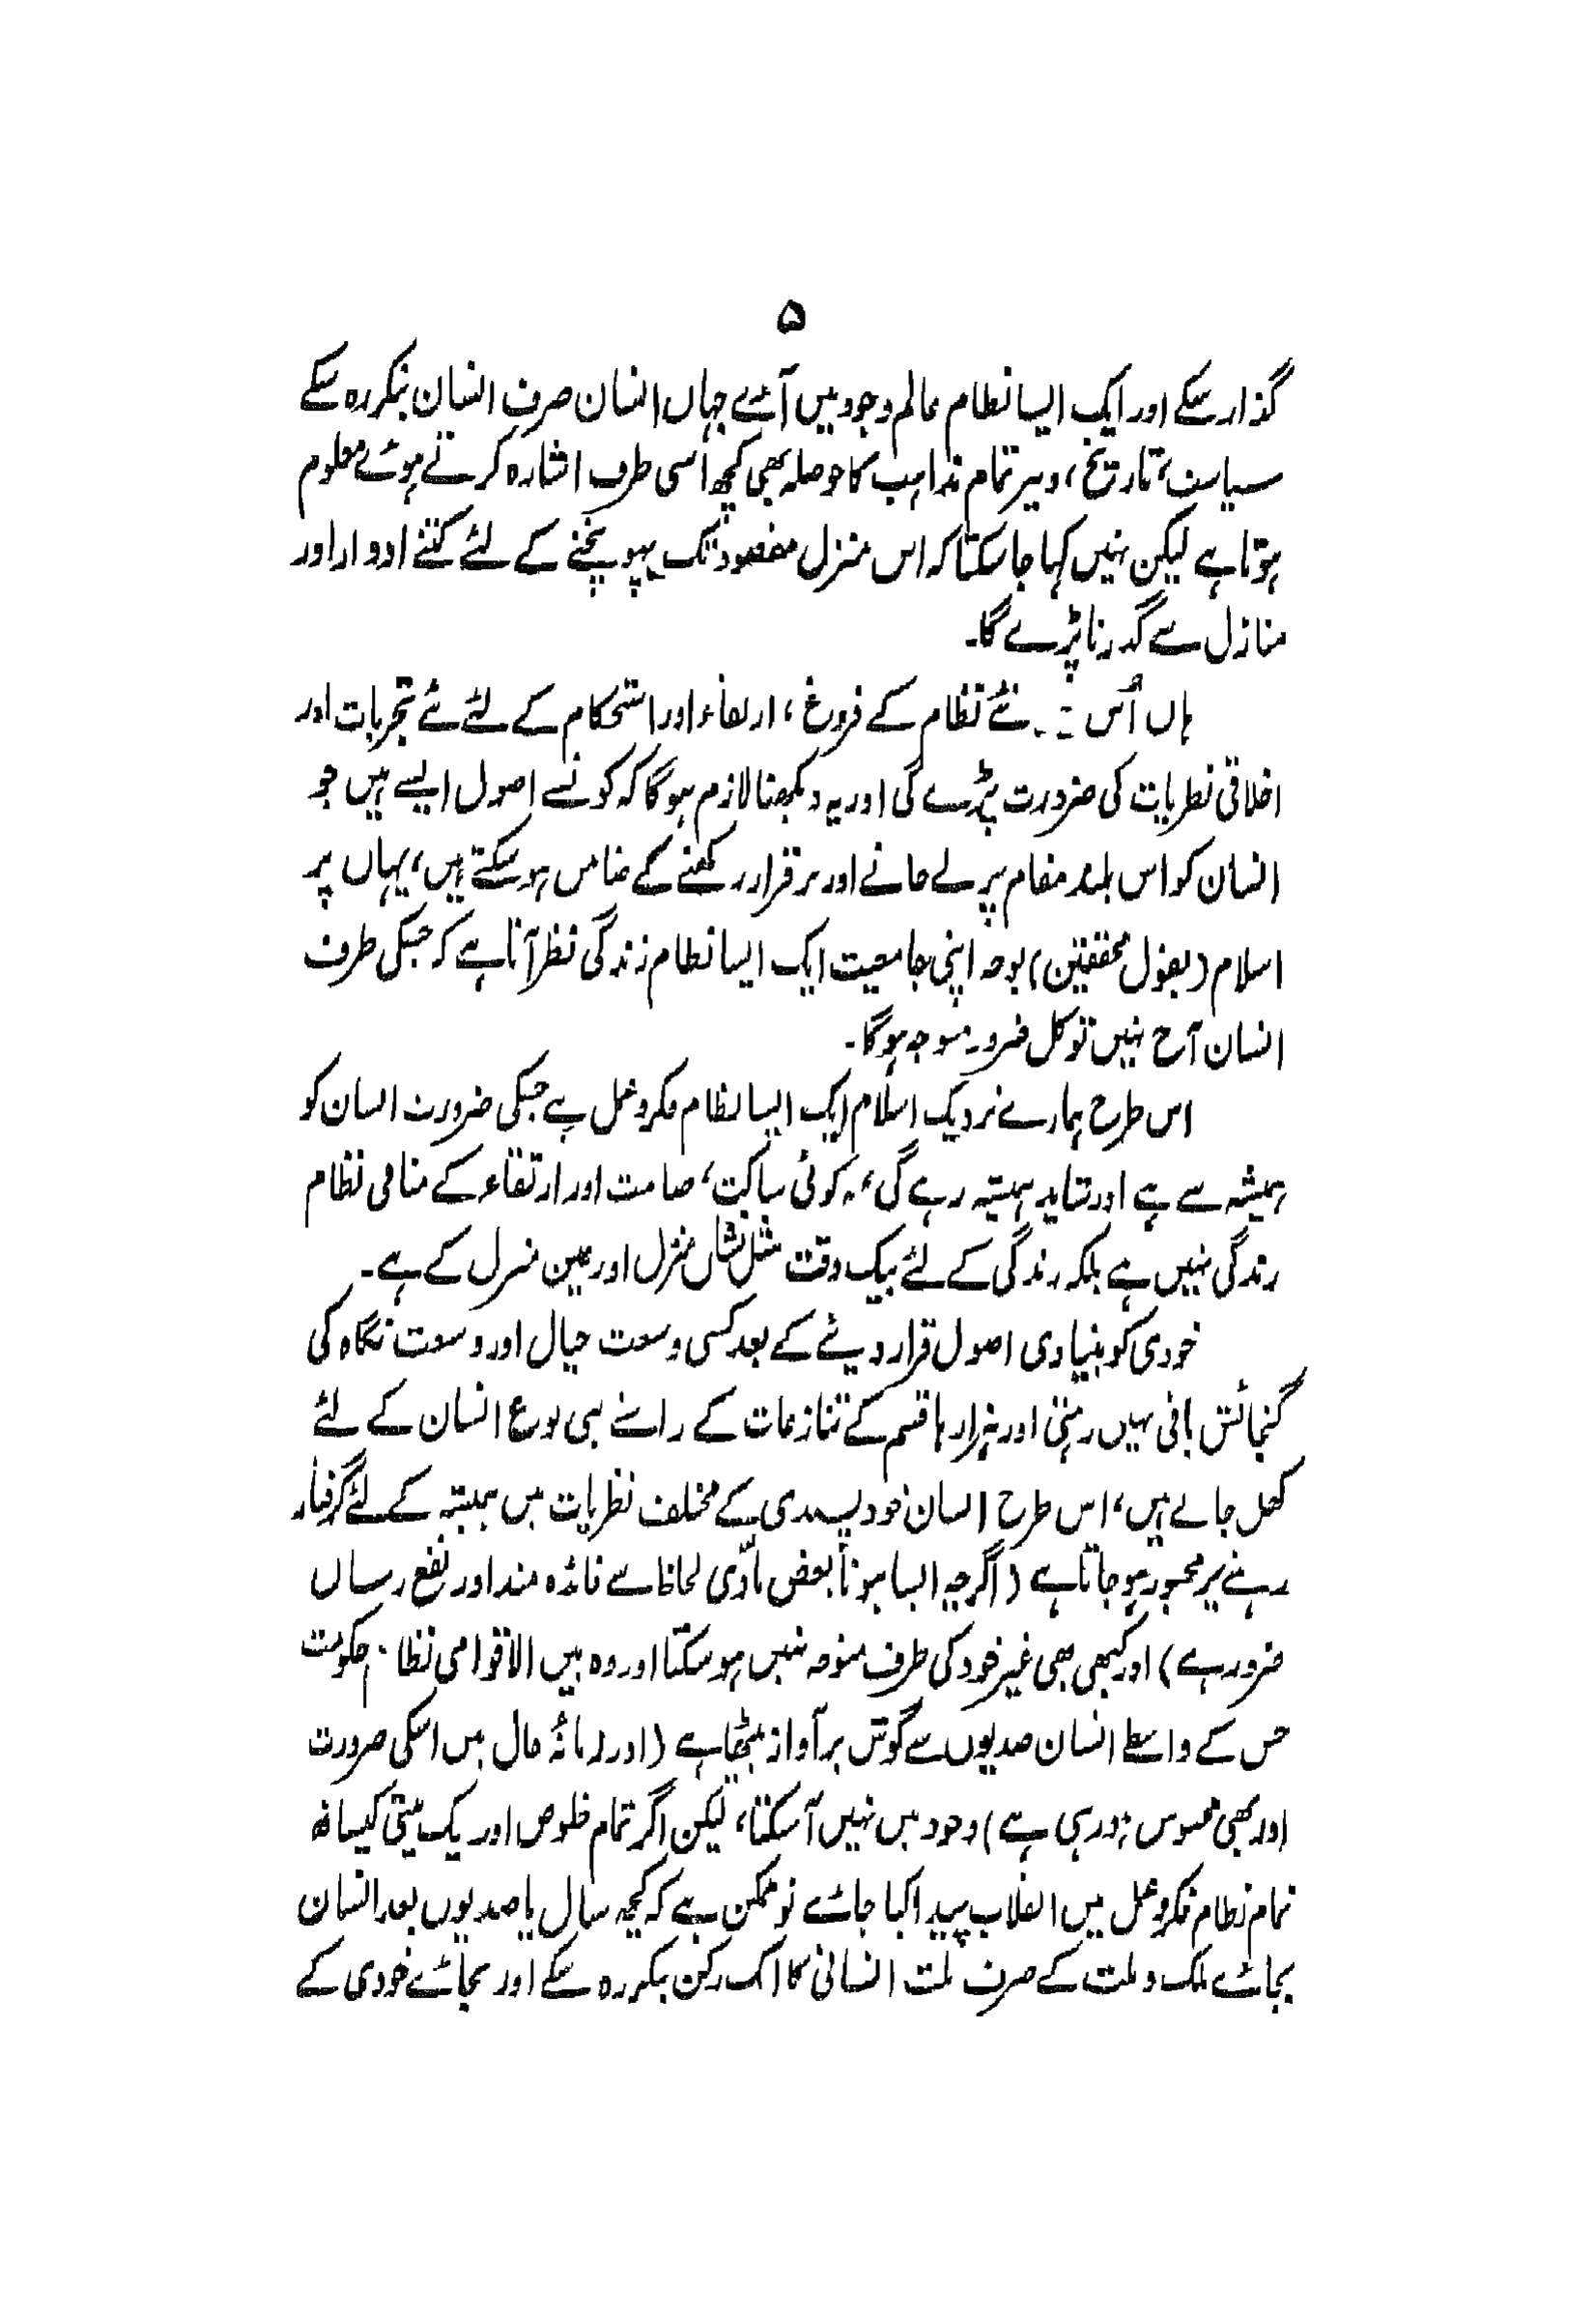 ۵
گذار سکے اور ایک ایسا نظام عالم وجود میں آئے جہاں انسان صرف انسان بنکر رہ سکے
سیاست، تاریخ، و نیز تمام مذاہب کا حوصلہ بھی کچھ اسی طرف اشارہ کرتے ہوئے معلوم
ہوتا ہے لیکن نہیں کہا جا سکتا کہ اس منزل مقصود تک پہونچنے کے لئے کتنے ادوار اور
منازل سے گذرنا پڑے گا۔
ہاں اُس نئے نظام کے فروغ، ارتقاء اور استحکام کے لئے نئے تجربات اور
اخلاقی نظریات کی ضرورت پڑے گی اور یہ دیکھنا لازم ہوگا کہ کونسے اصول ایسے ہیں جو
انسان کو اس بلند مقام پر لے جانے اور برقرار رکھنے کے ضامن ہو سکتے ہیں، یہاں پر
اسلام (بقول محققین) بوجہ اپنی جامعیت ایک ایسا نظام زندگی نظر آتا ہے کہ جسکی طرف
انسان آج نہیں تو کل ضرور متوجہ ہوگا۔
اس طرح ہمارے نزدیک اسلام ایک ایسا نظام فکر و عمل ہے جسکی ضرورت انسان کو
ہمیشہ سے ہے اور شاید ہمیشہ رہے گی، یہ کوئی ساکت، صامت اور ارتقاء کے منافی نظام
زندگی نہیں ہے بلکہ زندگی کے لئے بیک وقت مثل نشان منزل اور عین منزل کے ہے۔
خودی کو بنیادی اصول قرار دینے کے بعد کسی وسعت خیال اور وسعت نگاہ کی
گنجائش باقی نہیں رہتی اور ہزارہا قسم کے تنازعات کے راستے بنی نوع انسان کے لئے
کھل جاتے ہیں، اس طرح انسان خود پسندی کے مختلف نظریات میں ہمیشہ کے لئے گرفتار
رہنے پر مجبور ہو جاتا ہے (اگرچہ ایسا ہونا بعض مادّی لحاظ سے فائدہ مند اور نفع رساں
ضرور ہے) اور کبھی بھی غیر خود کی طرف متوجہ نہیں ہو سکتا اور وہ بین الاقوامی نظام حکومت
جس کے واسطے انسان صدیوں سے گوش بر آواز بیٹھا ہے (اور زمانۂ حال میں اسکی ضرورت
اور بھی محسوس ہو رہی ہے) وجود میں نہیں آسکتا، لیکن اگر تمام خلوص اور یک نیتی کیساتھ
تمام نظام فکر و عمل میں انقلاب پیدا کیا جائے تو ممکن ہے کہ کچھ سال یا صدیوں بعد انسان
بجائے ملک و ملت کے صرف ملت انسانی کا اک رکن بنکر رہ سکے اور بجائے خودی کے